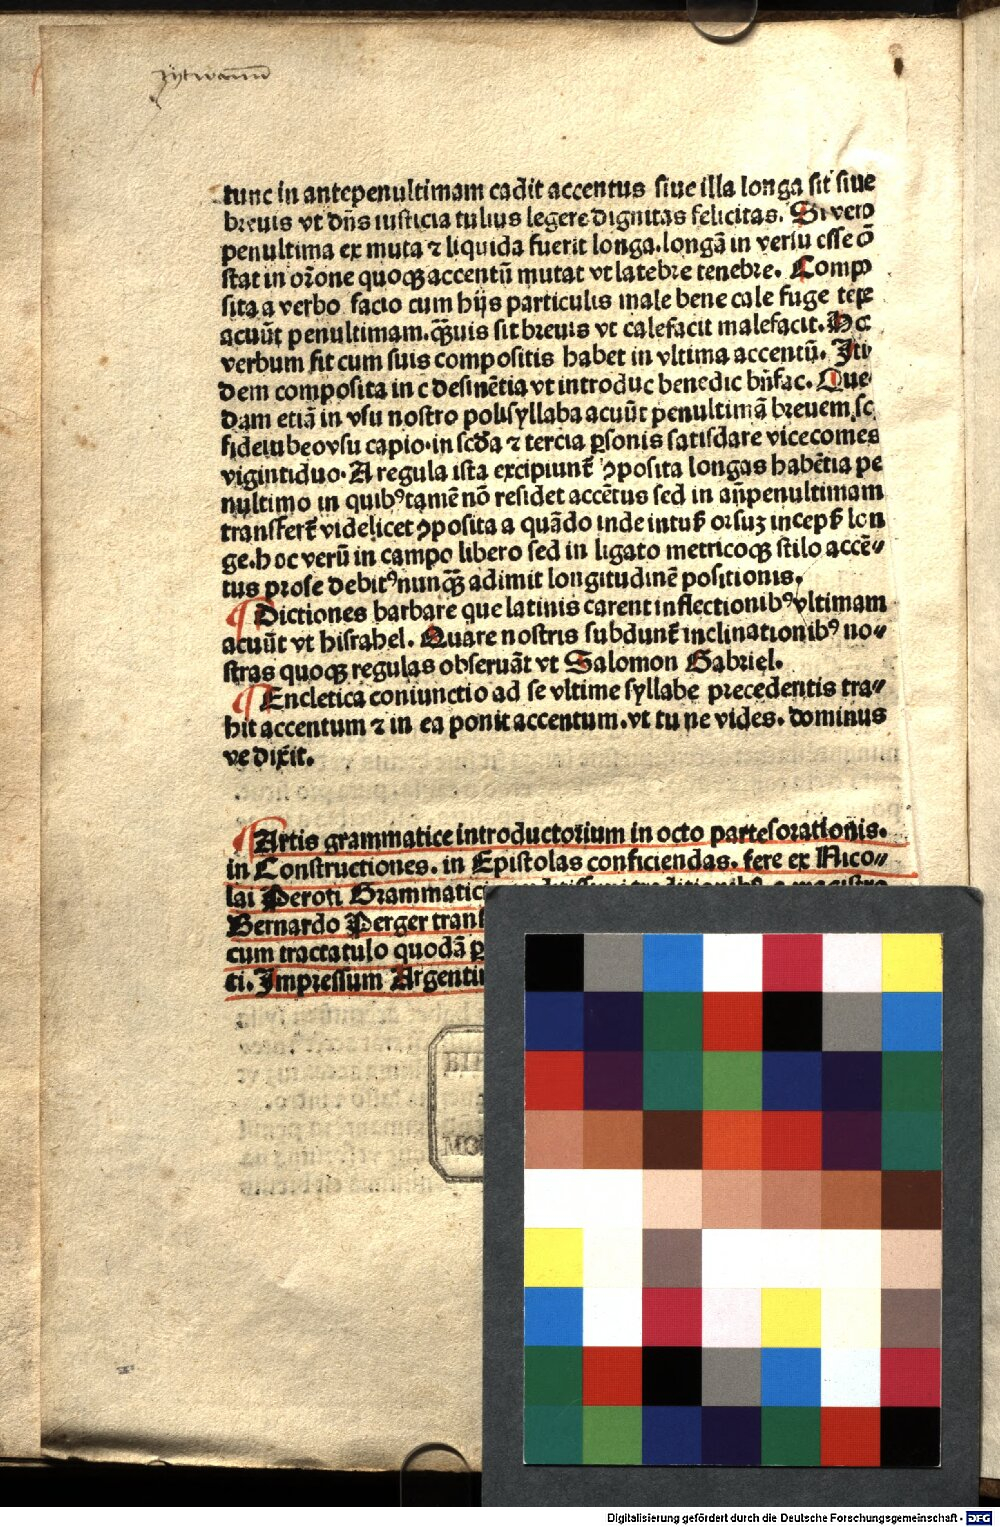 tunc in antepenultimam cadit accentus siue illa longa sit siue
breuis vt dn̄s iusticia tulius legere dignitas felicitas. Si vero
penultima ex muta ⁊ liquida fuerit longa. longā in versu esse ꝯ̄
stat in orōne quoqꝫ accentū mutat vt latebre tenebre. Compo
sita a verbo facio cum hijs particulis male bene cale fuge tepe
acuūt penultimam. qꝫ̄uis sit breuis vt calefacit malefacit. Hoc
verbum fit cum suis compositis habet in vltima accentū. Iti
dem composita in c desinētia vt introduc benedic bn̄fac. Que
dam etiā in vsu nostro polisyllaba acuūt penultimā breuem. sc
fideiubeo vsu capio. in scďa ⁊ tercia ꝑsonis satisdare vicecomes
vigintiduo. A regula ista excipiunt᷑ ꝯposita longas habētia pe
nultimo in quibꝰ tamē nō residet accētus sed in an̄penultimam
transfert᷑ videlicet ꝯposita a quādo inde intus᷑ orsuꝫ incep᷑ lon
ge. hoc verū in campo libero sed in ligato metricoqꝫ stilo accē⸗
tus prose debitꝰ nunqꝫ̄ adimit longitudinē positionis.
¶ Dictiones barbare que latinis carent inflectionibꝰ vltimam
acuūt vt hisrahel. Quare nostris subdunt᷑ inclinationibꝰ no⸗
stras quoqꝫ regulas obseruāt vt Salomon Gabriel.
¶ Encletica coniunctio ad se vltime syllabe precedentis tra⸗
hit accentum ⁊ in ea ponit accentum. vt tu ne vides. dominus
ve dixit.
¶ Artis grammatice introductorium in octo partes orationis.
in Constructiones. in Epistolas conficiendas. fere ex Nico⸗
lai Peroti Grammatici
Bernardo Perger transs
cum tractatulo quodā ꝑ
ti. Impressum Argentin
BI
MO
Digitalisierung gefördert durch die Deutsche Forschungsgemeinschaft - DFG